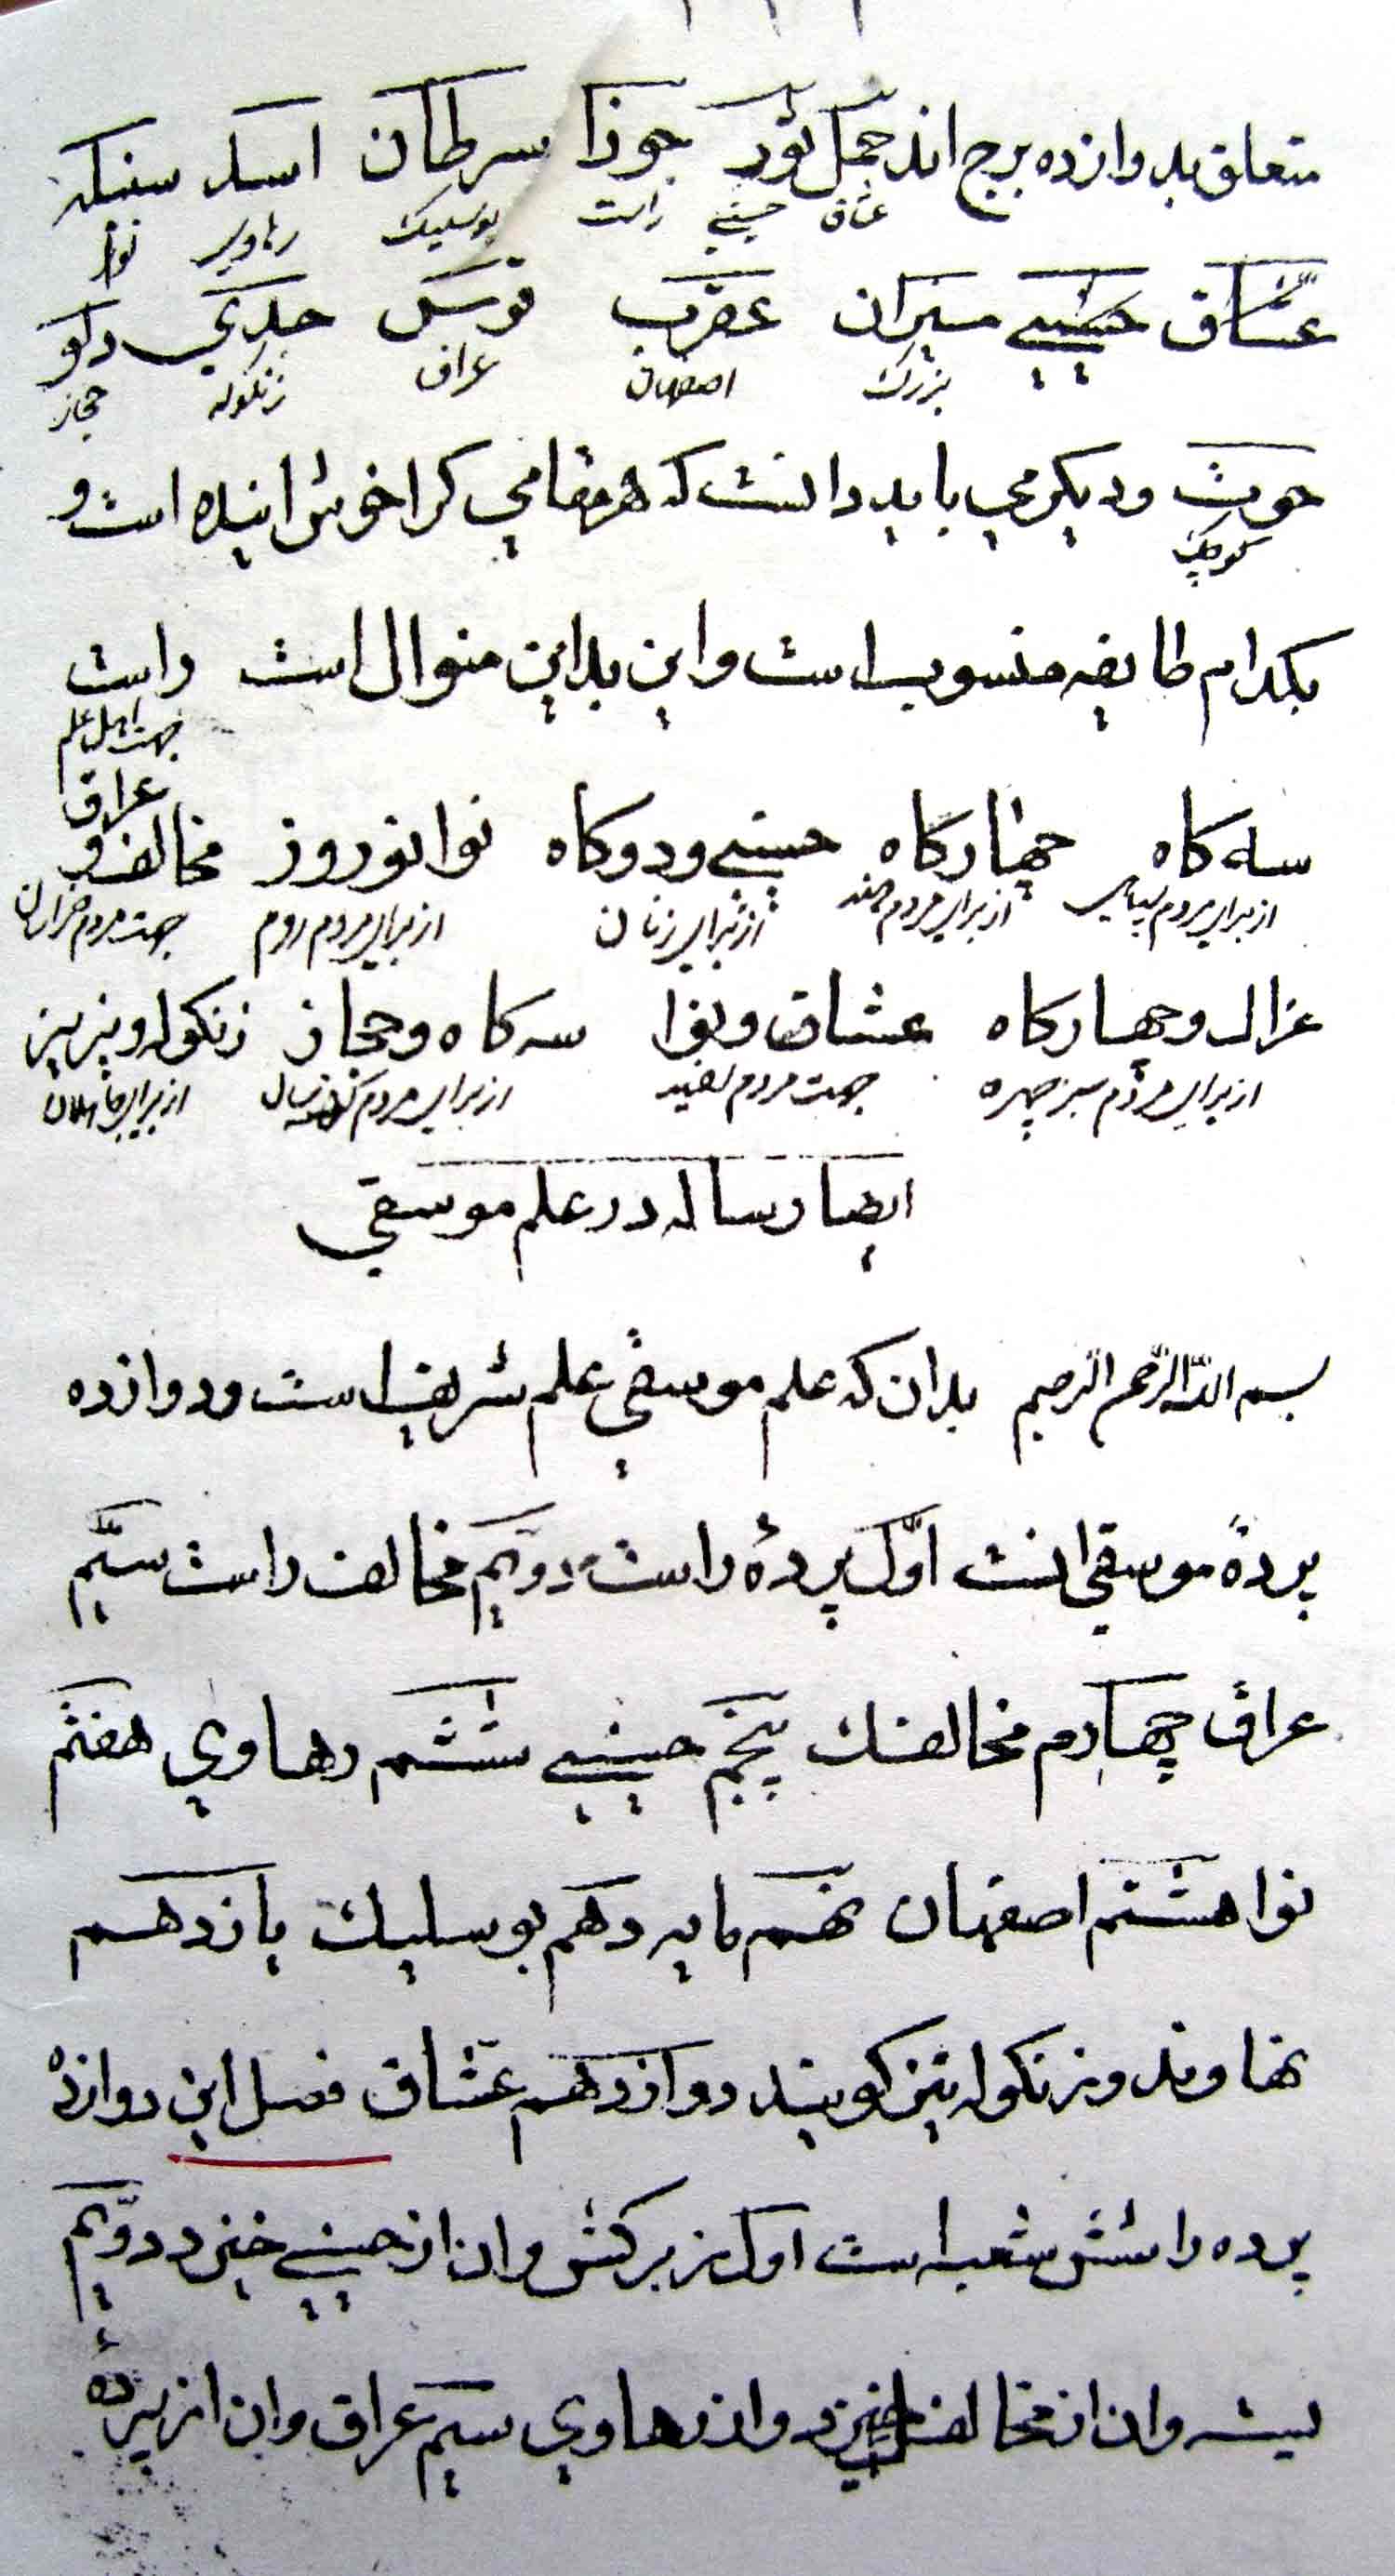 متعلق بدوازده برج اند حمل ثور جوزا سرطان اسد سنبله
عشاق حسینی راست بوسلیک رهاوی نوا
عشاق حسینی میزان عقرب قوس جدی دلو
بزرک اصفهان عراق زنکوله حجاز
حوت ودیکر می باید دانست که هر مقامی کرا خوش اینده است و
کوچک
بکدام طایفه منسوب است واین بداین منوال است راست
جهت اهل علم
عراق
سه کاه چهارکاه حسینی ودوکاه نوا نوروز مخالف و
از برای مردم از برای مردم هند از برای زنان از برای مردم روم جهت مردم
عزال وچهارکاه عشاق ونوا سه کاه وحجاز زنکوله و
از برای مردم سبز چهره جهت مردم سفید از برای مردم از برای
ایضا رساله در علم موسقی
بسم الله الرحمن الرحیم بدان که علم موسقی علم شریف است ودوازده
پردۀ موسقی است اوّل پردۀ راست دویّم مخالف راست سیّم
عراق چهارم مخالفک پنجم حسینی ششم رهاوی هفتم
نوا هشتم اصفهان نهم مایه دهم بوسلیک یازدهم
نهاوند وزنکوله نیز کویند دوازدهم عشاق فصل این دوازده
پرده را شش شعبه است اول زیرکش وان از حسینی خیزد دویّم
بسته وان از مخالف خیزد واز رهاوی سیم عراق وان از پردۀ